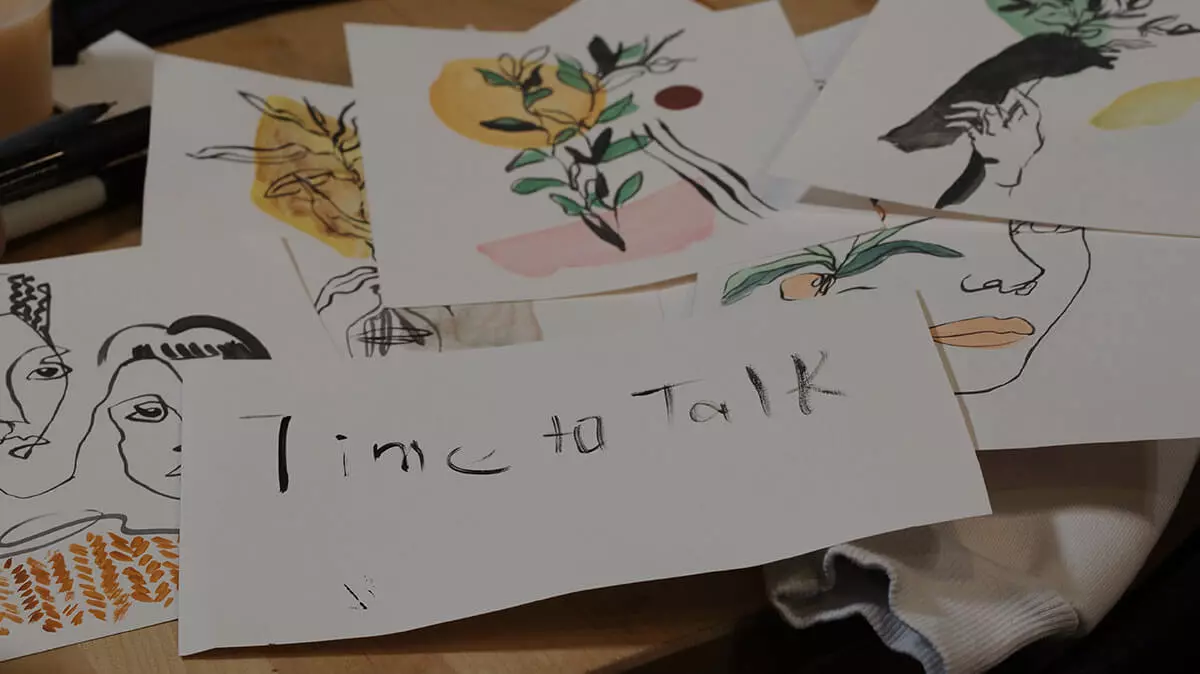 Time to Talk